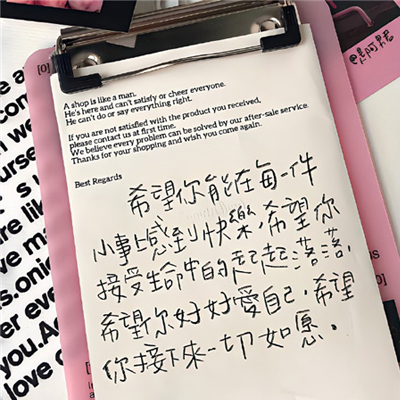 [0]
A shop is like a man.
He's here and can't satisfy or cheer everyone.
He can't do or say everything right.
If you are not satisfied with the product you received,
please contact us at first time.
We believe every problem can be solved by our after-sale service.
Thanks for your shopping and wish you come again.
Best Regards
希望你能在每一件
小事上感到快樂,希望你
接受生命中的起起落落,
希望你好好愛自己,希望
你接下來一切如愿。
are li
you.Ad